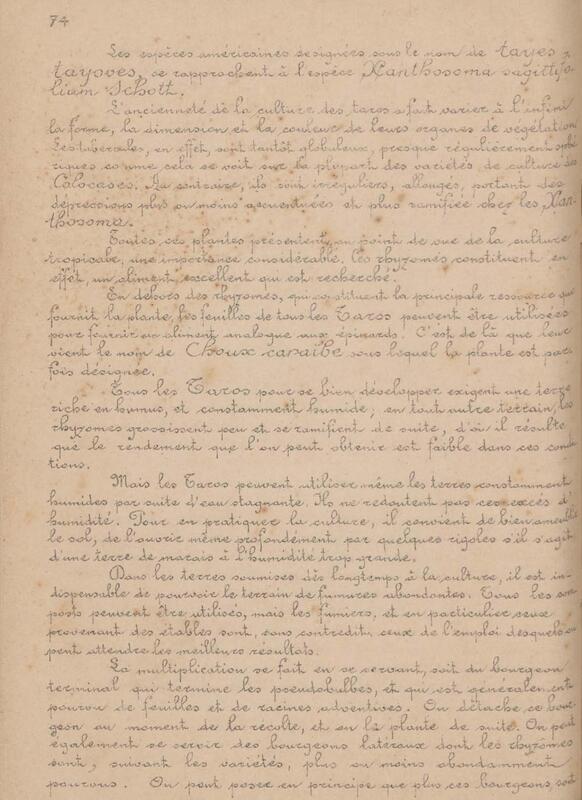 74
Les espèces américaines designées sous le nom de tayes,
tayoves, se rapprochent à l'espèce Xanthosoma sagittifo-
liam Schott.
L'ancienneté de la culture des taros a fait varier à l'infini
la forme, la dimension et la couleur de leurs organes de végétation
Les tubercules, en effet, sont tantôt globuleux, presque régulièrement sphé
riques comme cela se voit sur la plupart des variétés de culture des
Colocases. Au contraire, ils sont irréguliers, allongés, portant des
dépressions plus ou moins accentuées et plus ramifiée chez les Xan-
thosoma.
Toutes ces plantes présentent, au point de vue de la culture
tropicale, une importance considérable. Les rhyzomes constituent en
effet, un aliment excellent qui est recherché.
En dehors des rhyzomes, qui constituent la principale ressource que
fournit la plante, les feuilles de tous les Taros peuvent être utilisées
pour fournir un aliment analogue aux épinards. C'est de là que leur
vient le nom de Choux caraïbe sous lequel la plante est par
fois désignée.
Tous les Taros pour se bien développer exigent une terre
riche en humus, et constamment humide; en tout autre terrain, les
rhyzomes grossissent peu et se ramifient de suite, d'où il résulte
que le rendement que l'on peut obtenir est faible dans ces condi
tions.
Mais les Taros peuvent utiliser même les terres constamment
humides par suite d'eau stagnante. Ils ne redoutent pas ces excès d'
humidité. Pour en pratiquer la culture, il convient de bien ameublir
le sol, de l'ouvrir même profondément par quelques rigoles s'il s'agit
d'une terre de marais à l'humidité trop grande.
Dans les terres soumises dès longtemps à la culture, il est in-
dispensable de pourvoir le terrain de fumures abondantes. Tous les com
posts peuvent être utilisés, mais les fumiers, et en particulier ceux
provenant des étables sont, sans contredit, ceux de l'emploi desquels on
peut attendre les meilleurs résultats.
La multiplication se fait en se servant, soit du bourgeon
terminal qui termine les pseudobulbes, et qui est généralement
pourvu de feuilles et de racines adventives. On détache ce bour
geon au moment de la récolte, et on le plante de suite. On peut
également se servir des bourgeons latéraux dont les rhyzomes
sont, suivant les variétés, plus ou moins abondamment
pourvus. On peut poser en principe que plus ces bourgeons sont